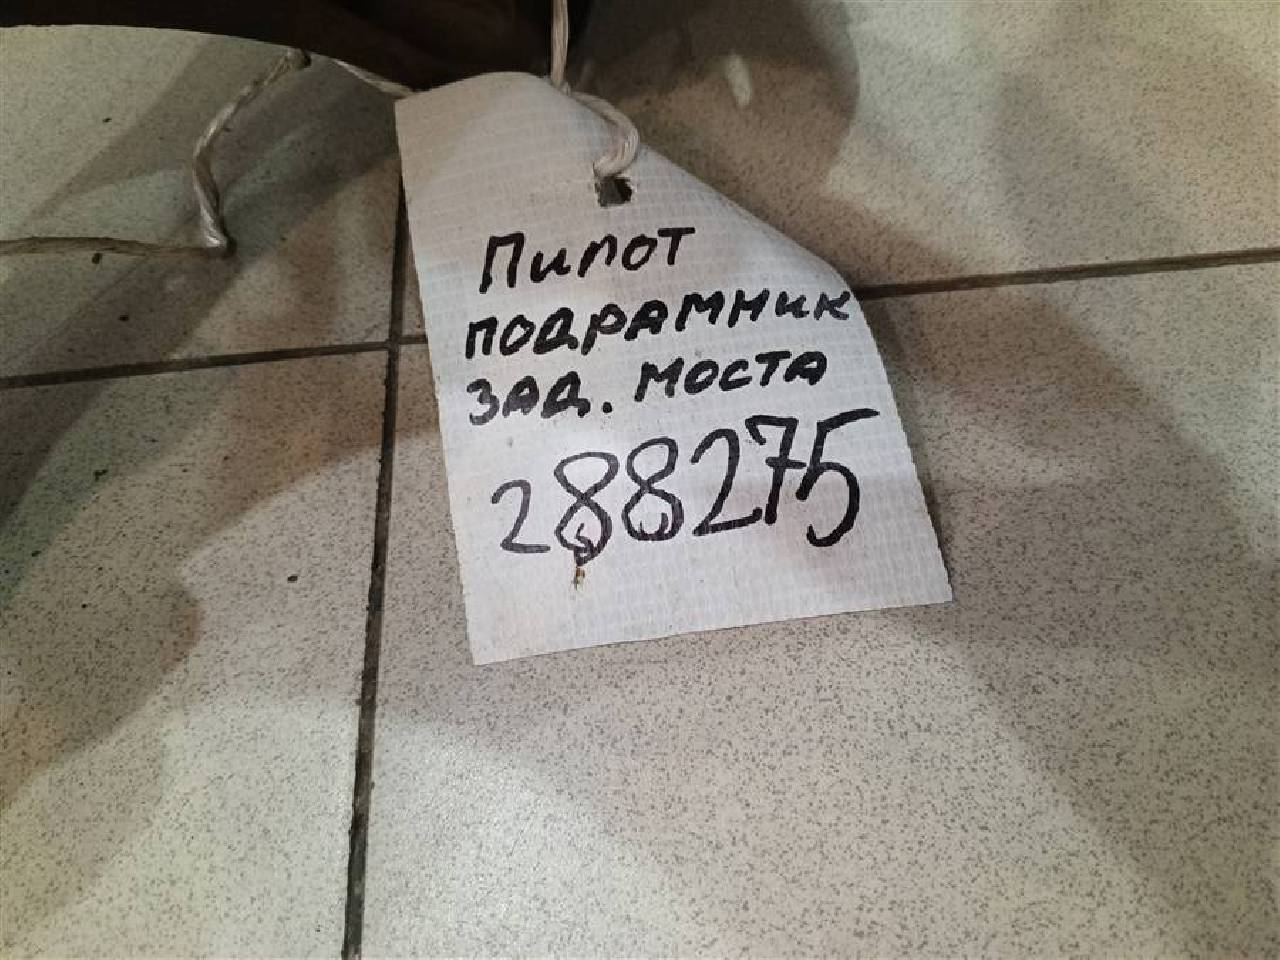 Пилот
подрамник
зад. моста
288275